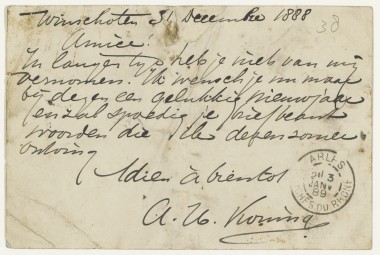 Winschoten 31 December 1888
38
Amice!
In langen tijd heb je niets van mij
vernomen. Ik wensch je nu maar
bij dezen een gelukkig nieuwjaar
en zal spoedig je brief beant
woorden die ik dezen zomer
ontving
Adieu à bientot
A. H. Koning
ARLES
3
JANV
89
BOUCHES DU RHONE